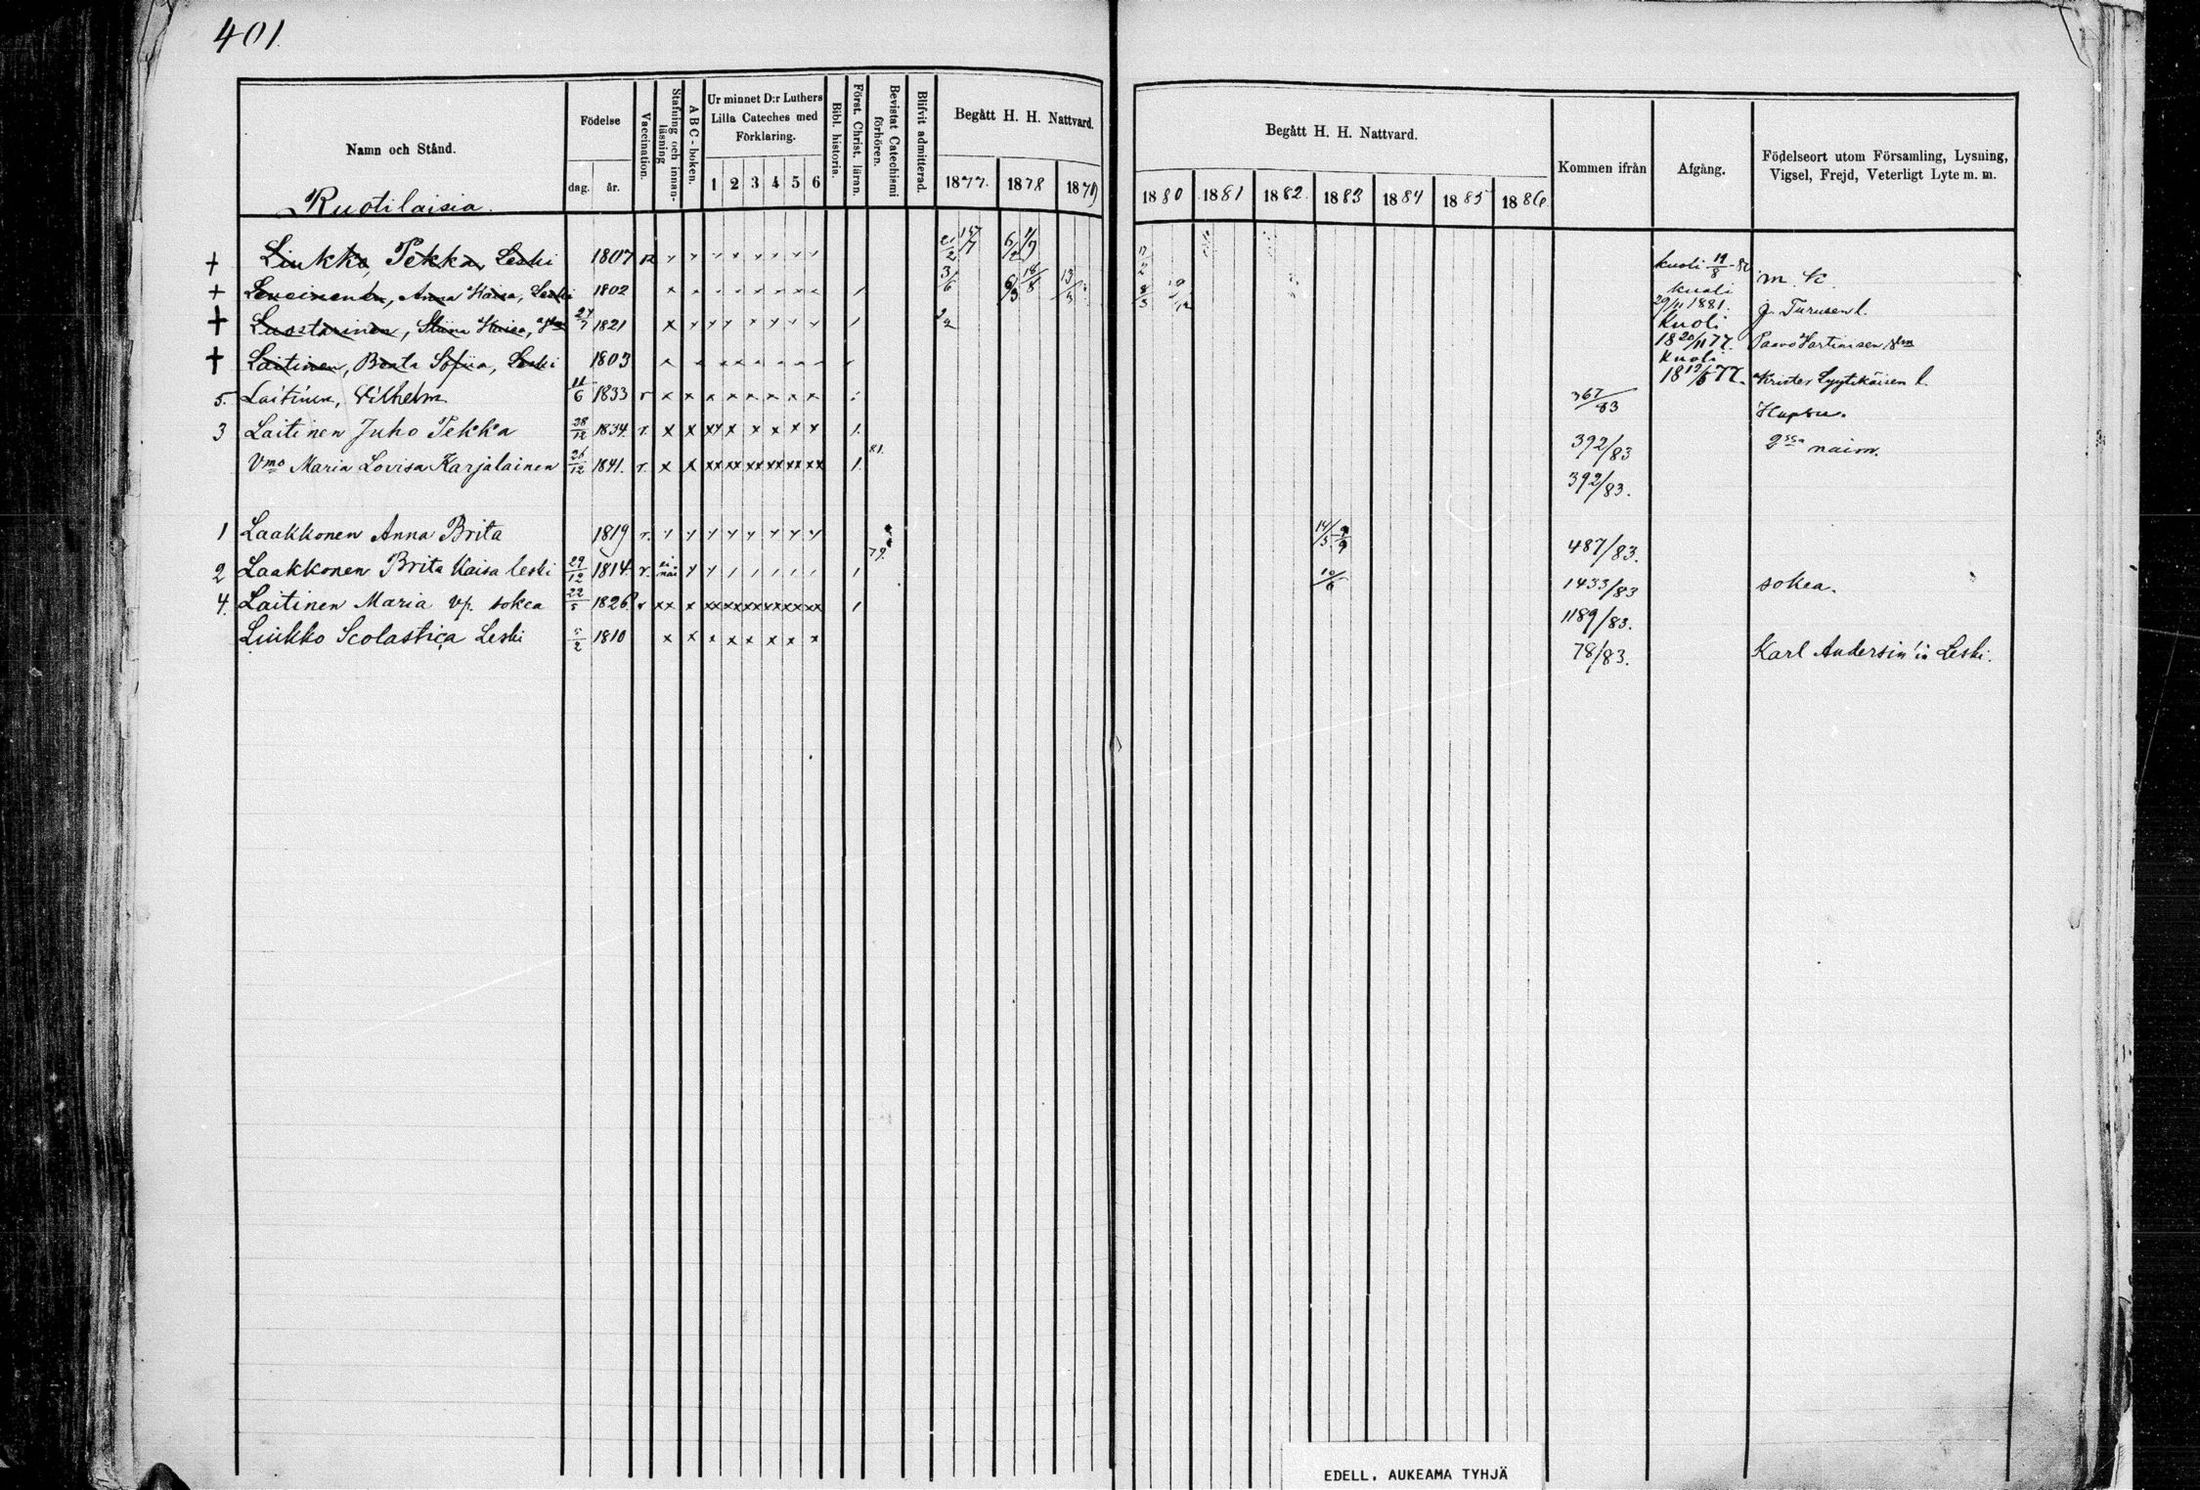 401.
Namn och Stånd.
Födelse
dag.
år.
Vaccination.
Stafning och innanläsning
ABC-boken.
Ur minnet D:r Luthers Lilla Cateches med Förklaring.
1 2 3 4 5 6
Bibl. historia.
Först. Christ. läran.
Bevistat Catechismi förhören.
Blifvit admitterad.
Begått H. H. Nattvard.
1877. 1878 1879
Begått H. H. Nattvard.
1880 1881 1882 1883 1884 1885 1886
Kommen ifrån
Afgång.
Födelseort utom Församling, Lysning, Vigsel, Frejd, Veterligt Lyte m. m.
Ruotilaisia.
+ Liukko, Pekka, Leski 1807 kuoli 19/8 m. k.
+ Anna Kaisa, Leski 1802 3/6 6/3 18/8 kuoli 29/11 1881. Turusen l.
+ Luostarinen, Stiina Kaisa, 1821 Kuoli 18 20/11 77. Paavo
+ Laitinen, Beata Sofiia, Leski 1803 Kuoli 77. Krister Lyytikäisen l.
5. Laitinen, Vilhelm 11/6 1833 r 367/83
3 Laitinen Juho Pekka 28/12 1834. r. 1. 392/83 2ssa naim.
Vmo Maria Lovisa Karjalainen 26/12 1841. r. 1. 81. 392/83.
1 Laakkonen Anna Brita 1819 r. 14/5 9/9 487/83.
2 Laakkonen Brita Kaisa leski 29/12 1814. r. 79. 10/6 1433/83 sokea.
4. Laitinen Maria vp. sokea 22/5 1826 r 1189/83.
Liukko Scolastica Leski 5/2 1810 78/83. Karl Andersin'in Leski.
EDELL. AUKEAMA TYHJÄ